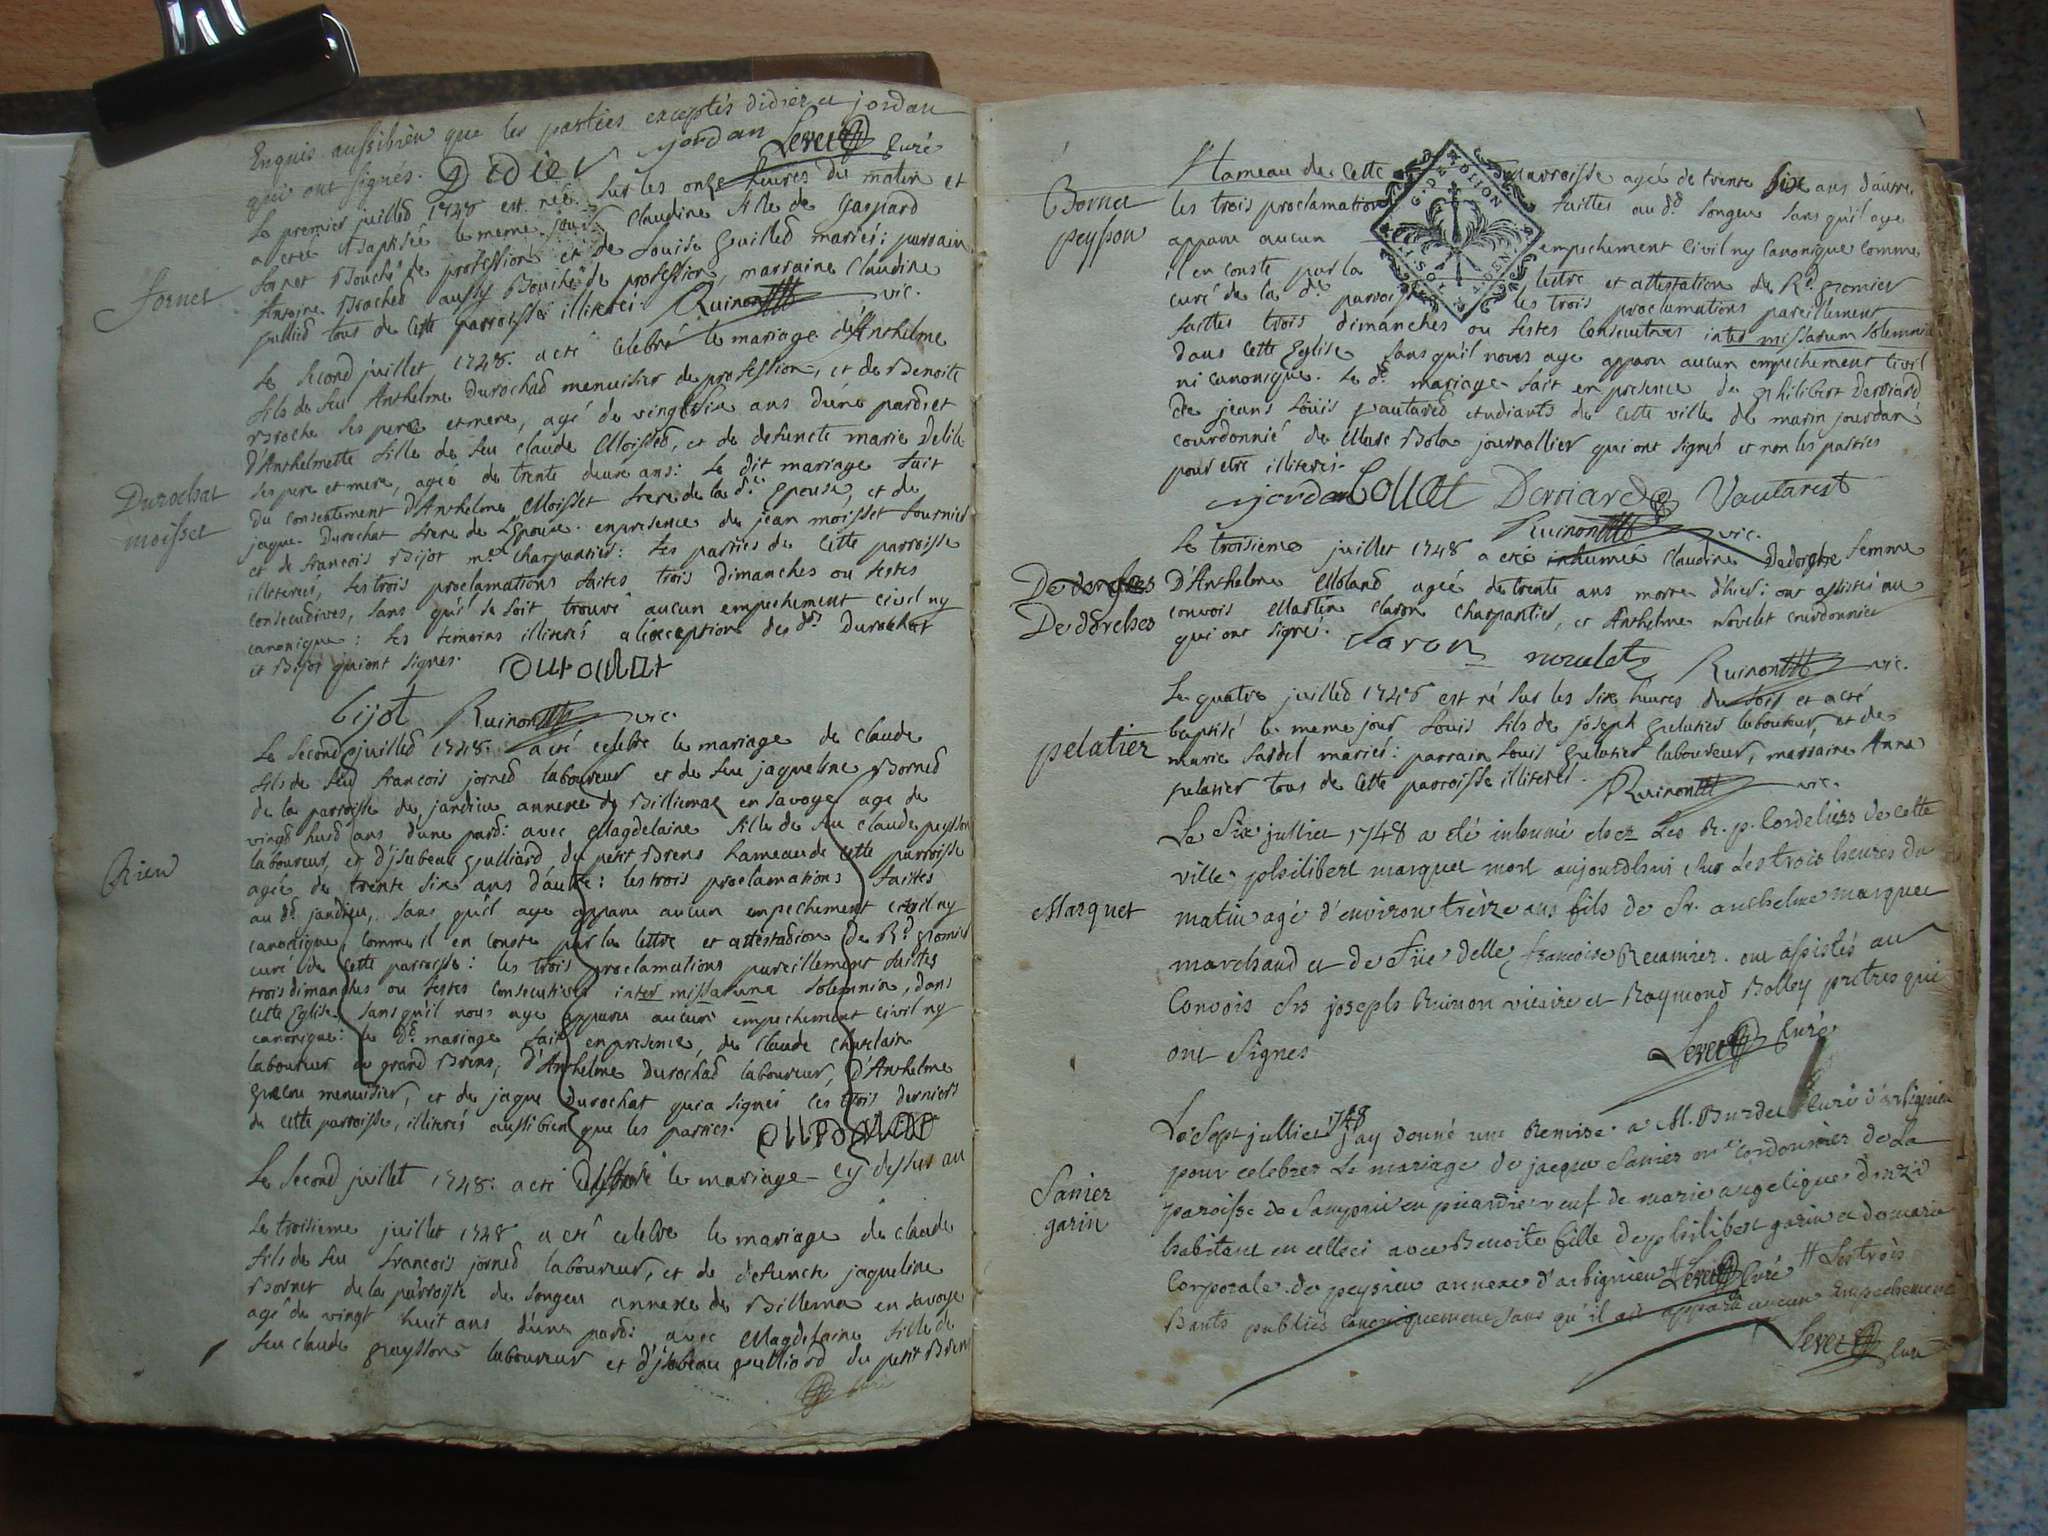 Enquis aussibien que les parties exceptés didier et jordan
qui ont signés. Didier jordan Sevet Curé
Fornet
Le premier juillet 1748 est née sur les onze heures du matin et
a etée baptisée le meme jour Claudine fille de Gaspard
fornet Bouché de profession et de Louise Guillet mariés: parrain
Antoine Brochet aussy Bouché de profession, marraine Claudine
tous de cette parroisse illiterés. Ruinon vic.
Durochat
moisset
Le second juillet 1748. a eté celebré le mariage d'Anthelme
fils de feu Anthelme Durochat menuisier de profession, et de Benoite
Broche ses pere et mere, agé de vingtsix ans d'une part et
d'Anthelmette fille de feu Claude Moisset, et de defuncte marie Delile
ses pere et mere, agée de trente deux ans: Le dit mariage fait
du consentement d'Anthelme Moisset frere de la de. Epouse, et de
jaque Durochat frere de l'Epoux. en presence de jean moisset fournier
et de francois Bijot me. Charpantier: les parties de cette parroisse
illiterés, les trois proclamations faites trois dimanches ou festes
consecutives, sans qu'il se soit trouvé aucun empechement civil ny
canonique: les temoins illiterés a l'exception des ds. Durochat
et Bijot qui ont signés. Durochat
bijot Ruinon vic.
Rien
Le second juillet 1748. a eté celebré le mariage de claude
fils de feu francois jornet laboureur et de feue jaqueline Bornet
de la parroisse de jandieu annexe de Billiemaz en Savoye agé de
vingt huit ans d'une part: avec Magdelaine fille de feu claude peysson
laboureur, et d'jsabeau Gulliard du petit Brens hameau de cette parroisse
agée de trente six ans d'autre: les trois proclamations faites
au dt. jandieu, sans qu'il aye apparu aucun empechement civil ny
canonique, comme il en conste par la lettre et attestation de Rd. gromier
curé de cette parroisse: les trois proclamations pareillement faites
trois dimanches ou festes consecutives inter missarum solemnia, dans
cette Eglise sans qu'il nous aye apparu aucun empechement civil ny
canonique: le dt. mariage fait en presence, de claude Chatelain
laboureur du grand Brens, d'Anthelme Durochat laboureur, d'Anthelme
menuisier, et de jaque Durochat qui a signé les trois derniers
de cette parroisse, illiterés aussi bien que les parties.
Le second juillet 1748: a eté le mariage cy dessus au
Le troisieme juillet 1748 a eté celebré le mariage de claude
fils de feu francois jorned laboureur, et de defuncte jaqueline
Bornet de la parroisse de Songeu annexe de Billema en savoye
agé de vingt huit ans d'une part: avec Magdelaine fille de
feu claude peysson laboureur et d'jsabeau gulliard du petit Brens
curé
Bornet
peysson
Hameau de cette parroisse agé de trente six ans d'autre
les trois proclamations faittes au dt. Songeu sans qu'il aye
apparu aucun empechement civil ny canonique comme
il en conste par la lettre et attestation de Rd. gromier
curé de la de. parroisse les trois proclamations pareillement
faittes trois dimanches ou festes consecutives inter missarum solemnia
dans cette Eglise sans qu'il nous aye apparu aucun empechement civil
ni canonique. Le dt. mariage fait en presence de philibert Derriard
de jeans Louis Vautaret etudiants de cette ville de marin jourdan
courdonnié de Marc Bolon journallier qui ont signés et non les parties
pour etre illiterés.
jordan Collet Derriard Vautaret
Ruinon vic.
De dorches
De dorches
Le troisieme juillet 1748 a eté inhumée Claudine Dedorche femme
D'Anthelme Moland agée de trente ans morte d'hier: ont assistés au
convois Martin Claron charpantier, et Anthelme Novelet courdonnier
qui ont signé. Claron novelet Ruinon vic.
pelatier
Le quatre juillet 1748 est né sur les six heures du soir et a eté
baptisé le meme jour Louis fils de joseph pelatier laboureur, et de
marie Sardel mariés: parrain Louis pelatier laboureur, marraine Anne
pelatier tous de cette parroisse illiterés. Ruinon vic.
Marquet
Le six julliet 1748 a été inhumé chez les R. p. Cordeliers de cette
ville philibert marquet mort aujourdhui sur les trois heures du
matin agé d'environ treize ans fils de Sr. anthelme marquet
marchand et de füe delle. francoise Recamier. ont assistés au
Convois Srs joseph Ruinon vicaire et Raymond Bolley prêtres qui
ont signes Sevet Curé
Sanier
garin
Le Sept julliet 1748 j'ay donné une Remise a M. Burdet Curé d'arbignieu
pour celebrer le mariage de jacque Sanier me. Cordonnier de la
paroisse de en picardie veuf de marie angelique
habitant en cellecy avec Benoite fille de philibert garin et de marie
Corporale de peysieu annexe d'arbignieu # Sevet Curé # Les trois
Bants publiés canoniquement sans qu'il ait apparu aucun Empechement
Sevet Curé